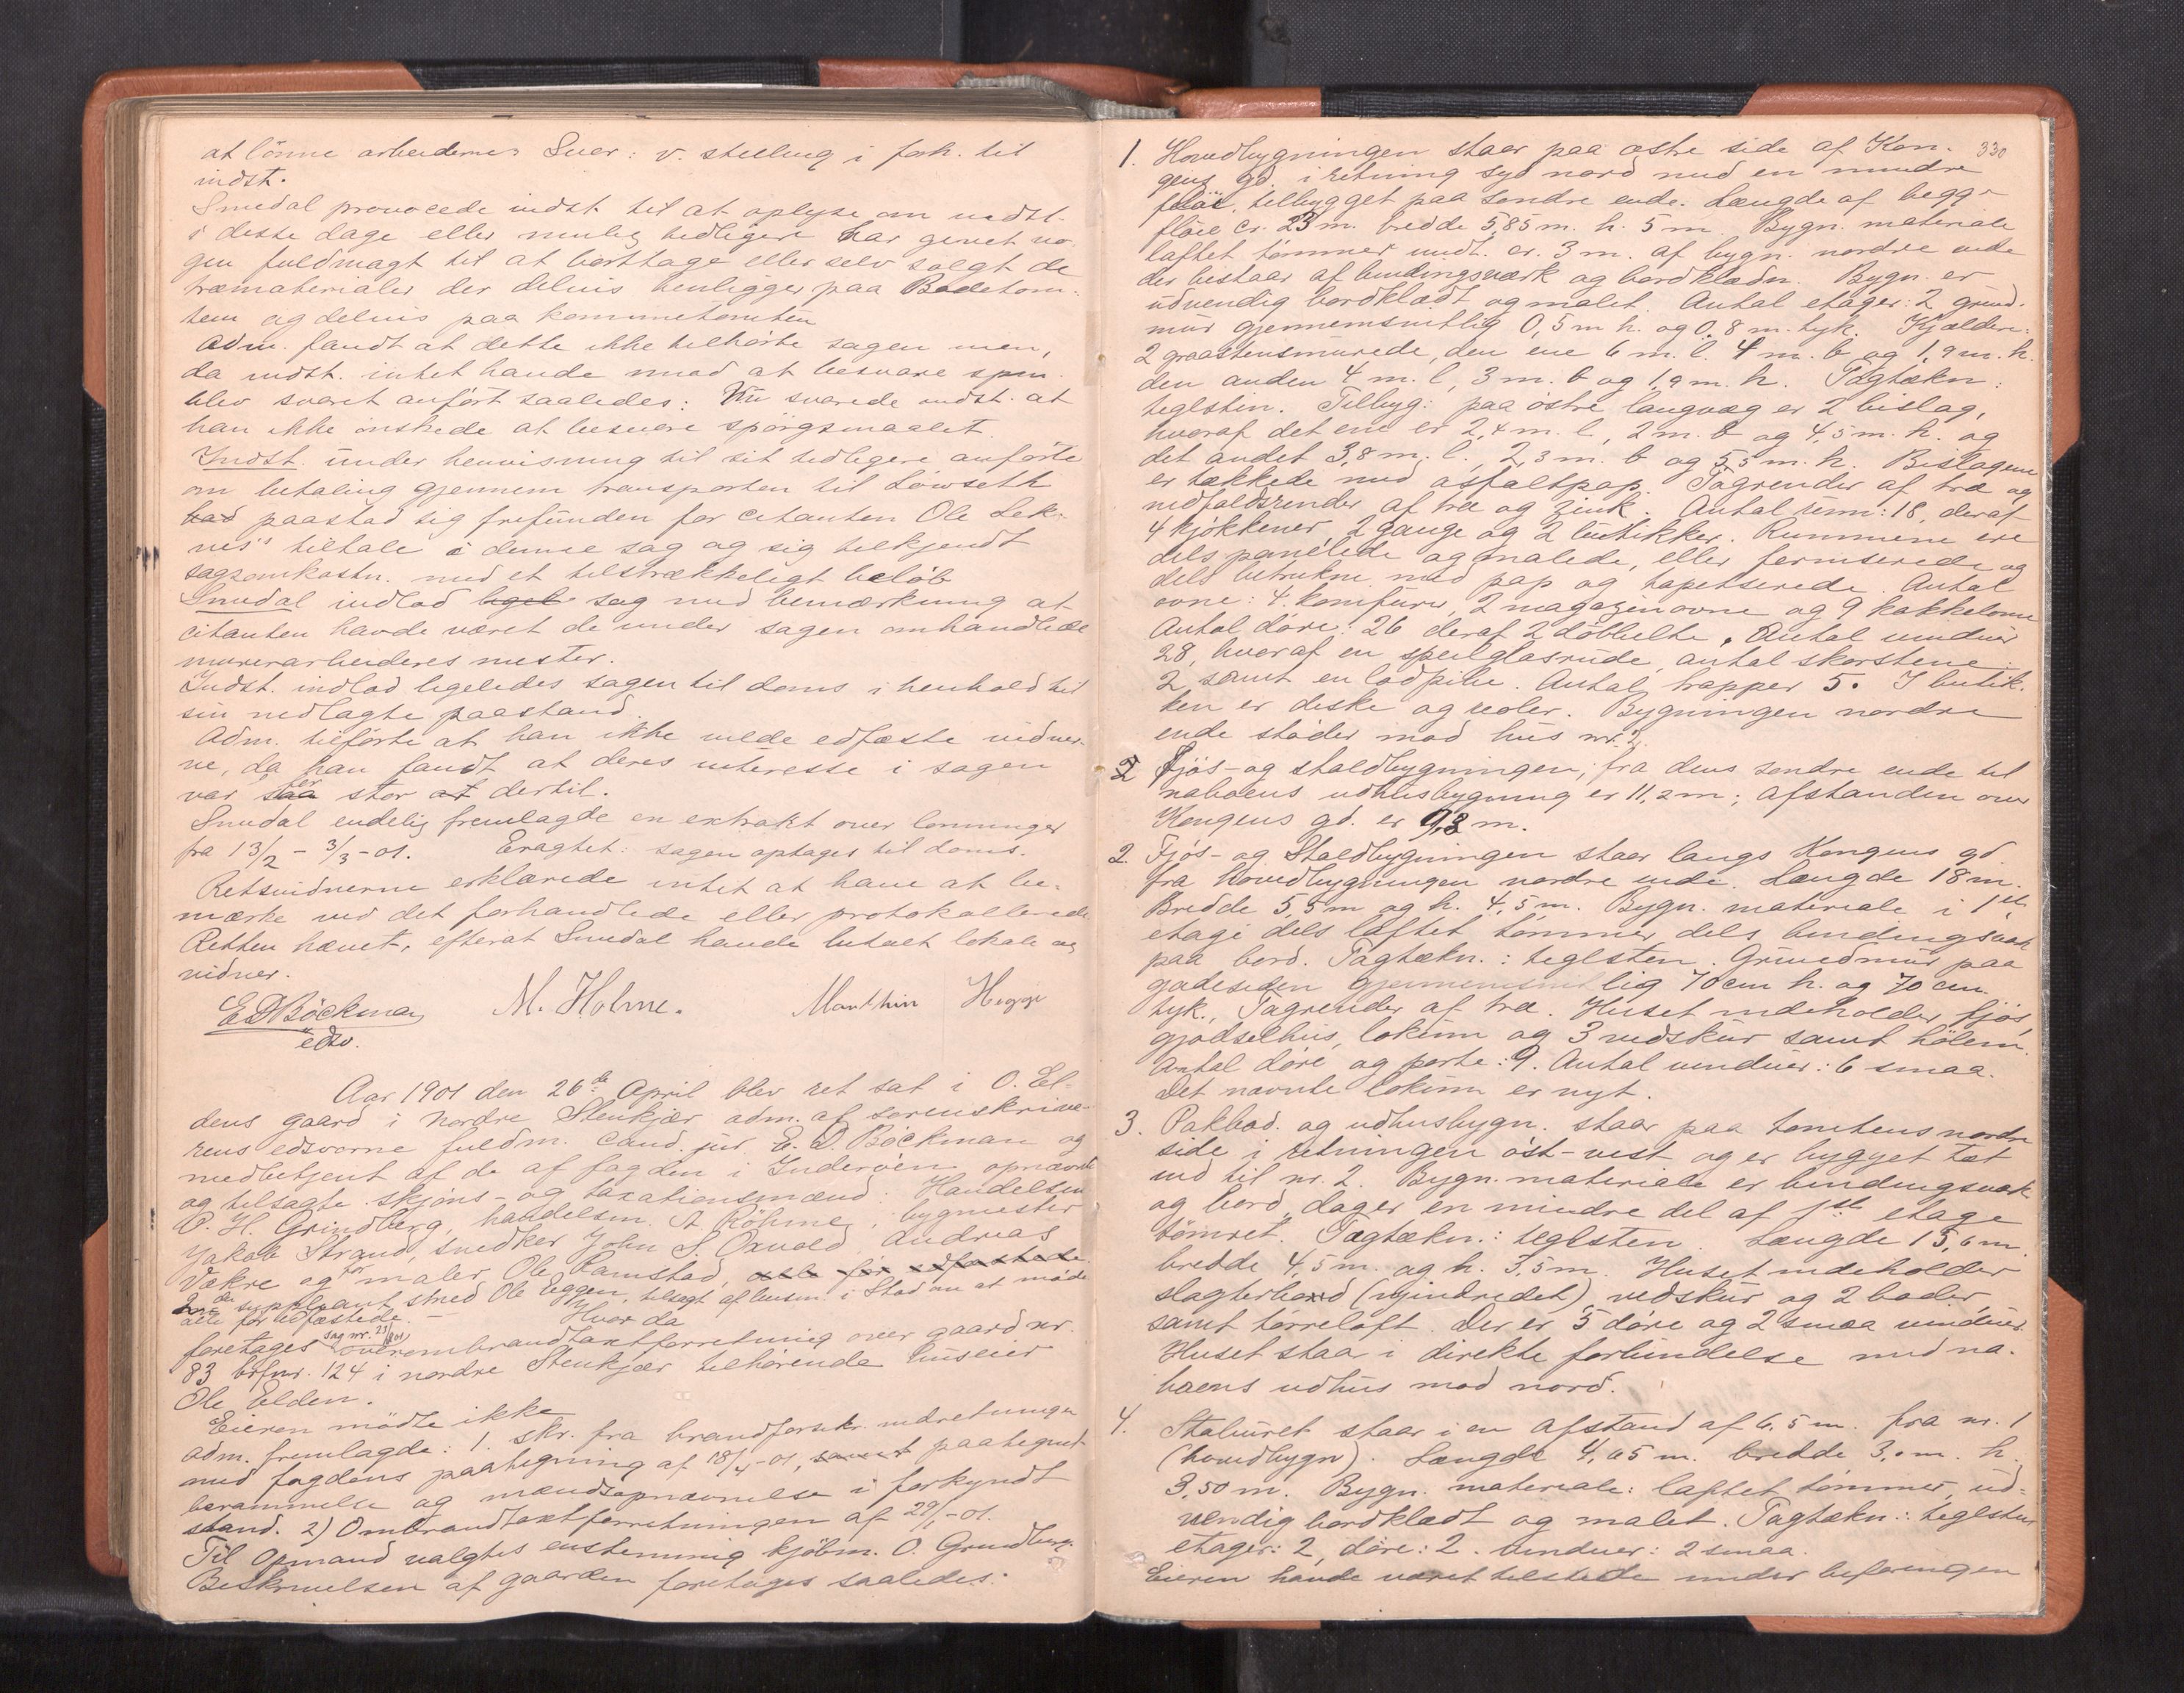 at lönne arbeidernes Svar: v. stilling i forh. til
indst.
Smedal provocede indst. til at oplyse om indst.
i disse dage eller mulig tidligere har givet no-
gen fuldmagt til at borttage eller selv solgt de
træmaterialer der delvis henligger paa Bodetom-
ten og delvis paa kommunetomten
Adm. fandt at dette ikke tilhörte sagen men,
da indst. intet havde imod at besvare spm.
blev svaret anfört saaledes: Nu svarede indst. at
han ikke önskede at besvare spörgsmaalet.
Indst. under henvisning til sit tidligere anförte
om betaling gjennem transporten til Löwseth
bad paastod sig frifunden for citanten Ole Lek-
nes's tiltale i denne sag og sig tilkjendt
sagsomkostn. med et tilstrækkeligt belöb
Smedal indlod sag med bemærkning at
citanten havde været de under sagen omhandlede
murerarbeideres mester.
Indst. indlod ligeledes sagen til doms i henhold til
sin nedlagte paastand.
Adm. tilförte at han ikke vilde edfæste vidner-
ne, da han fandt at deres interesse i sagen
var for stor dertil.
Smedal endelig fremlagde en extrakt over lönninger
fra 13/2 - 3/3 - 01. Eragtet: sagen optages til doms.
Retsvidnerne erklærede intet at have at be-
mærke ved det forhandlede eller protokollerede
Retten hævet, efterat Smedal havde betalt lokale og
vidner.
E D Böckman M. Holme. Marthin Hegge
edsv.
Aar 1901 den 26de April blev ret sat i O. El-
dens gaard i nordre Stenkjær adm. af sorenskrive-
rens edsvorne fuldm. cand. jur. E. D. Böckman og
medbetjent af de af fogden i Inderöen opnævnte
og tilsagte skjöns- og taxationsmænd: Handelsm
O. H. Grindberg, handelsm. A. Röhme, bygmester
Jakob Strand, snedker John S. Oxvold, Andreas
Vakre og for maler Ole Ramstad, alle för edfæstede
2den suppleant smed Ole Eggen, tilsagt af lensm. i Stod om at möde
alle för edfæstede. - Hvor da
foretoges sag nr. 21/1901 overombrandtaxtforretning over gaard nr.
83 brfnr. 124 i nordre Stenkjær tilhörende huseier
Ole Elden.
Eieren mödte ikke
adm. fremlagde: 1. skr. fra brandforsikr. indretningen
med fogdens paategning af 18/4 - 01, samt paategnet
berammelse og mændsopnævnelse i forkyndt
stand. 2) Ombrandtaxtforretningen af 29/1 - 01.
Til Opmand valgtes enstemmig kjöbm. O. Grindberg.
Beskrivelsen af gaarden foretoges saaledes:
330
1. Hovedbygningen staar paa östre side af Kon-
gens gd. i retning syd nord med en mindre
flöi, tilbygget paa söndre ende. Længde af begge
flöie er 23 m. bredde 5,85 m. h. 5 m. Bygn. materiale
laftet tömmer undt. cr. 3 m. af bygn. nordre ende
der bestaar af bindingsværk og bordklædn. Bygn. er
udvendig bordklædt og malet. Antal etager: 2 grund-
mur gjennemsnitlig 0,5 m h. og 0,8 m. tyk. Kjældere:
2 graastensmurede, den ene 6 m. l. 4 m. b og 1,9 m. h.
den anden 4 m. l, 3 m. b og 1,9 m. h. Tagtækn:
teglsten. Tilbyg: paa östre langvæg er 2 bislag,
hvoraf det ene er 2,4 m. l., 2 m. b og 4,5 m. h. og
det andet 3,8 m. l., 2,3 m. b og 5,5 m. h. Bislagene
er tækkede med asfaltpap. Tagrender af træ og
nedfaldsrender af træ og zink. Antal rum: 18, deraf
4 kjökkener, 2 gange og 2 butikker. Rummene ere
dels panelede og malede, eller ferniserede og
dels betrukne med pap og tapetserede. Antal
ovne: 4 komfurer, 2 magazinovne og 9 kakkelovne
Antal döre: 26 deraf 2 dobbelte. Antal vinduer
28, hvoraf en speilglasrude, antal skorstene:
2 samt en lodpibe. Antal trapper 5. I butik-
ken er diske og reoler. Bygningen nordre
ende stöder mod hus nr. 2.
2 Fjös- og staldbygningen, fra dens söndre ende til
naboens udhusbygning er 11,2 m; Afstanden over
Kongens gd. er 9,8 m.
2. Fjös- og Staldbygningen staar langs Kongens gd.
fra hovedbygningen nordre ende. Længde 18 m.
Bredde 5,5 m og h. 4,5 m. Bygn. materiale i 1ste
etage dels laftet tömmer dels bindingsværk
paa bord. Tagtækn.: teglsten. Grundmur paa
gadesiden gjennemsnitlig 70 cm h. og 70 cm.
tyk. Tagrender af træ. Huset indeholder fjös,
gjödselhus, lokum og 3 vedskur samt hölem.
Antal döre og porte: 9. Antal vinduer: 6 smaa.
Det nævnte lokum er nyt.
3. Pakbod og udhusbygn. staar paa tomtens nordre
side i retningen öst-vest og er bygget tæt
ind til nr. 2. Bygn. materiale er bindingsværk
og bord, dog er en mindre del af 1ste etage
tömret. Tagtækn.: teglsten. Længde 15,6 m.
bredde 4,5 m. og h. 3,5 m. Huset indeholder
slagterbod (uindredet) vedskur og 2 boder,
samt törreloft. Der er 5 döre og 2 smaa vinduer.
Huset staar i direkte forbindelse med na-
boens udhus mod nord.
4. Staburet staar i en afstand af 6,5 m. fra nr. 1
(hovedbygn). Længde 4,65 m. bredde 3,0 m. h.
3,50 m. Bygn. materiale: laftet tömmer, ud-
vendig bordklædt og malet. Tagtækn.: teglsten
etager: 2, döre: 2. vinduer: 2 smaa.
Eieren havde været tilstede under befaringen